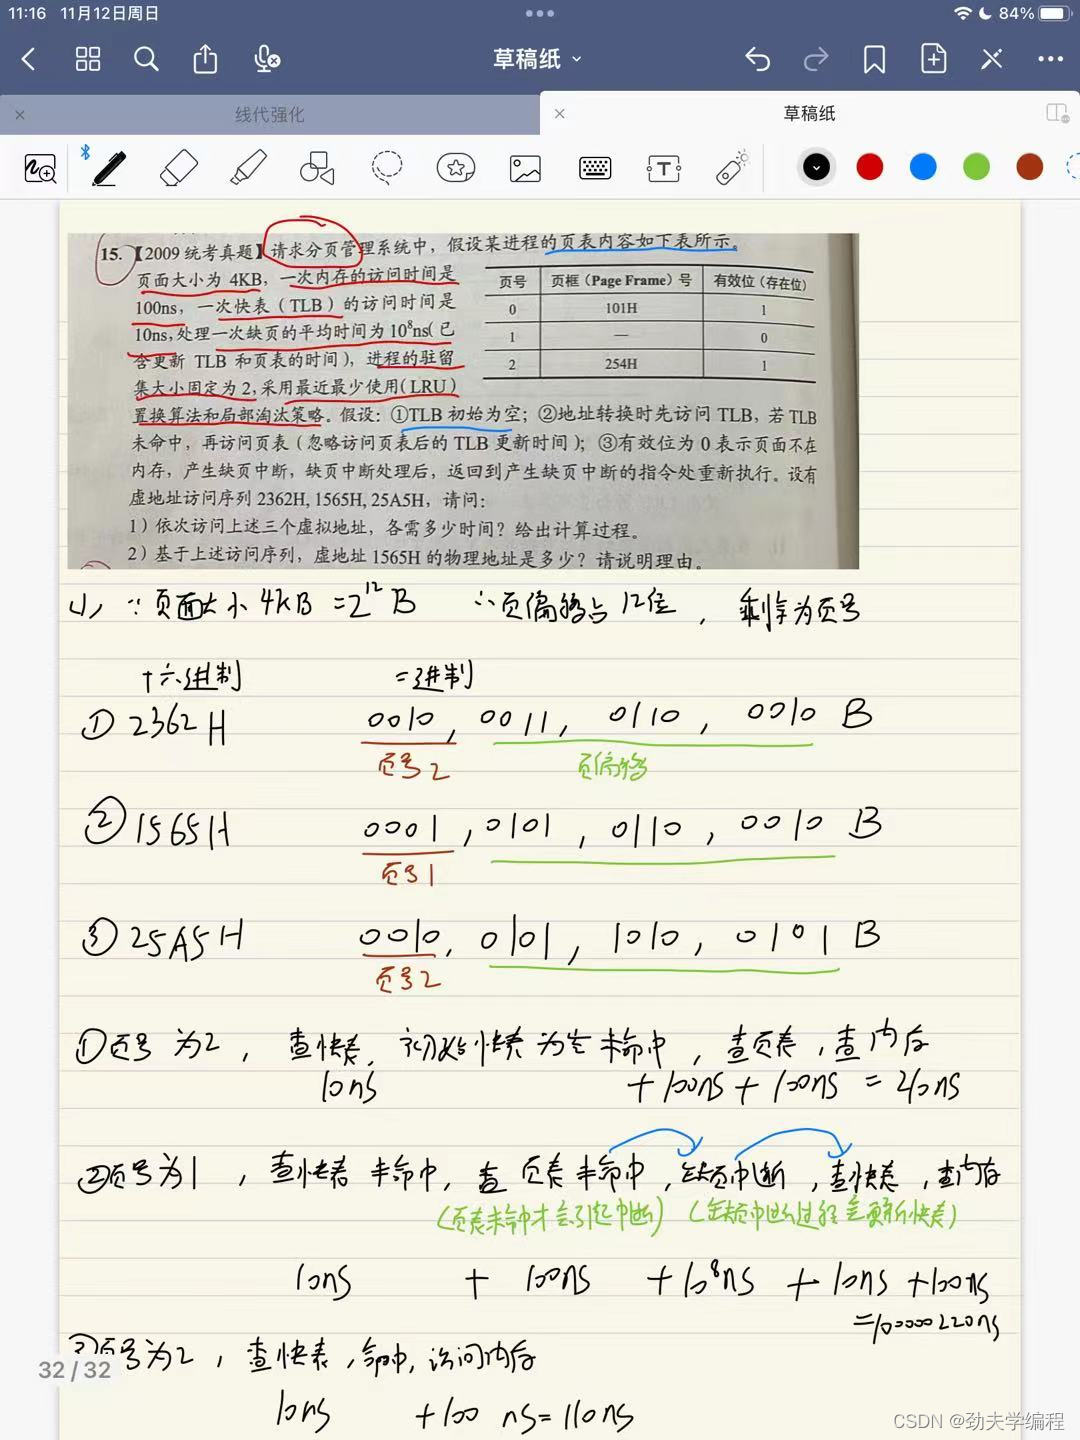 11:16 11月12日周日
84%
草稿纸
线代强化
草稿纸
15.【2009 统考真题】请求分页管理系统中，假设某进程的页表内容如下表所示。
页面大小为 4KB，一次内存的访问时间是
100ns，一次快表（TLB）的访问时间是
10ns，处理一次缺页的平均时间为 10⁸ns(已
含更新 TLB 和页表的时间），进程的驻留
集大小固定为 2，采用最近最少使用(LRU)
置换算法和局部淘汰策略。假设：①TLB 初始为空；②地址转换时先访问 TLB，若 TLB
未命中，再访问页表（忽略访问页表后的 TLB 更新时间）；③有效位为 0 表示页面不在
内存，产生缺页中断，缺页中断处理后，返回到产生缺页中断的指令处重新执行。设有
虚地址访问序列 2362H, 1565H, 25A5H，请问：
1）依次访问上述三个虚拟地址，各需多少时间？给出计算过程。
2）基于上述访问序列，虚地址 1565H 的物理地址是多少？请说明理由。
页号 页框（Page Frame）号 有效位（存在位）
0 101H 1
1 — 0
2 254H 1
1) ∵页面大小4KB =2¹²B ∴页偏移占12位，剩余为页号
十六进制 二进制
① 2362H 0010, 0011, 0110, 0010 B
页号2 页偏移
② 1565H 0001, 0101, 0110, 0010 B
页号1
③ 25A5H 0010, 0101, 1010, 0101 B
页号2
①页号为2，查快表，初始快表为空未命中，查页表，查内存
10ns +100ns+100ns = 210ns
②页号为1，查快表未命中，查页表未命中，缺页中断，查快表，查内存
(页表未命中才会引起中断) (缺页中断过程会更新快表)
10ns + 100ns +10⁸ns + 10ns +100ns
=100000220ns
③页号为2，查快表，命中，访问内存
32 / 32
10ns +100 ns=110ns
CSDN @劲夫学编程